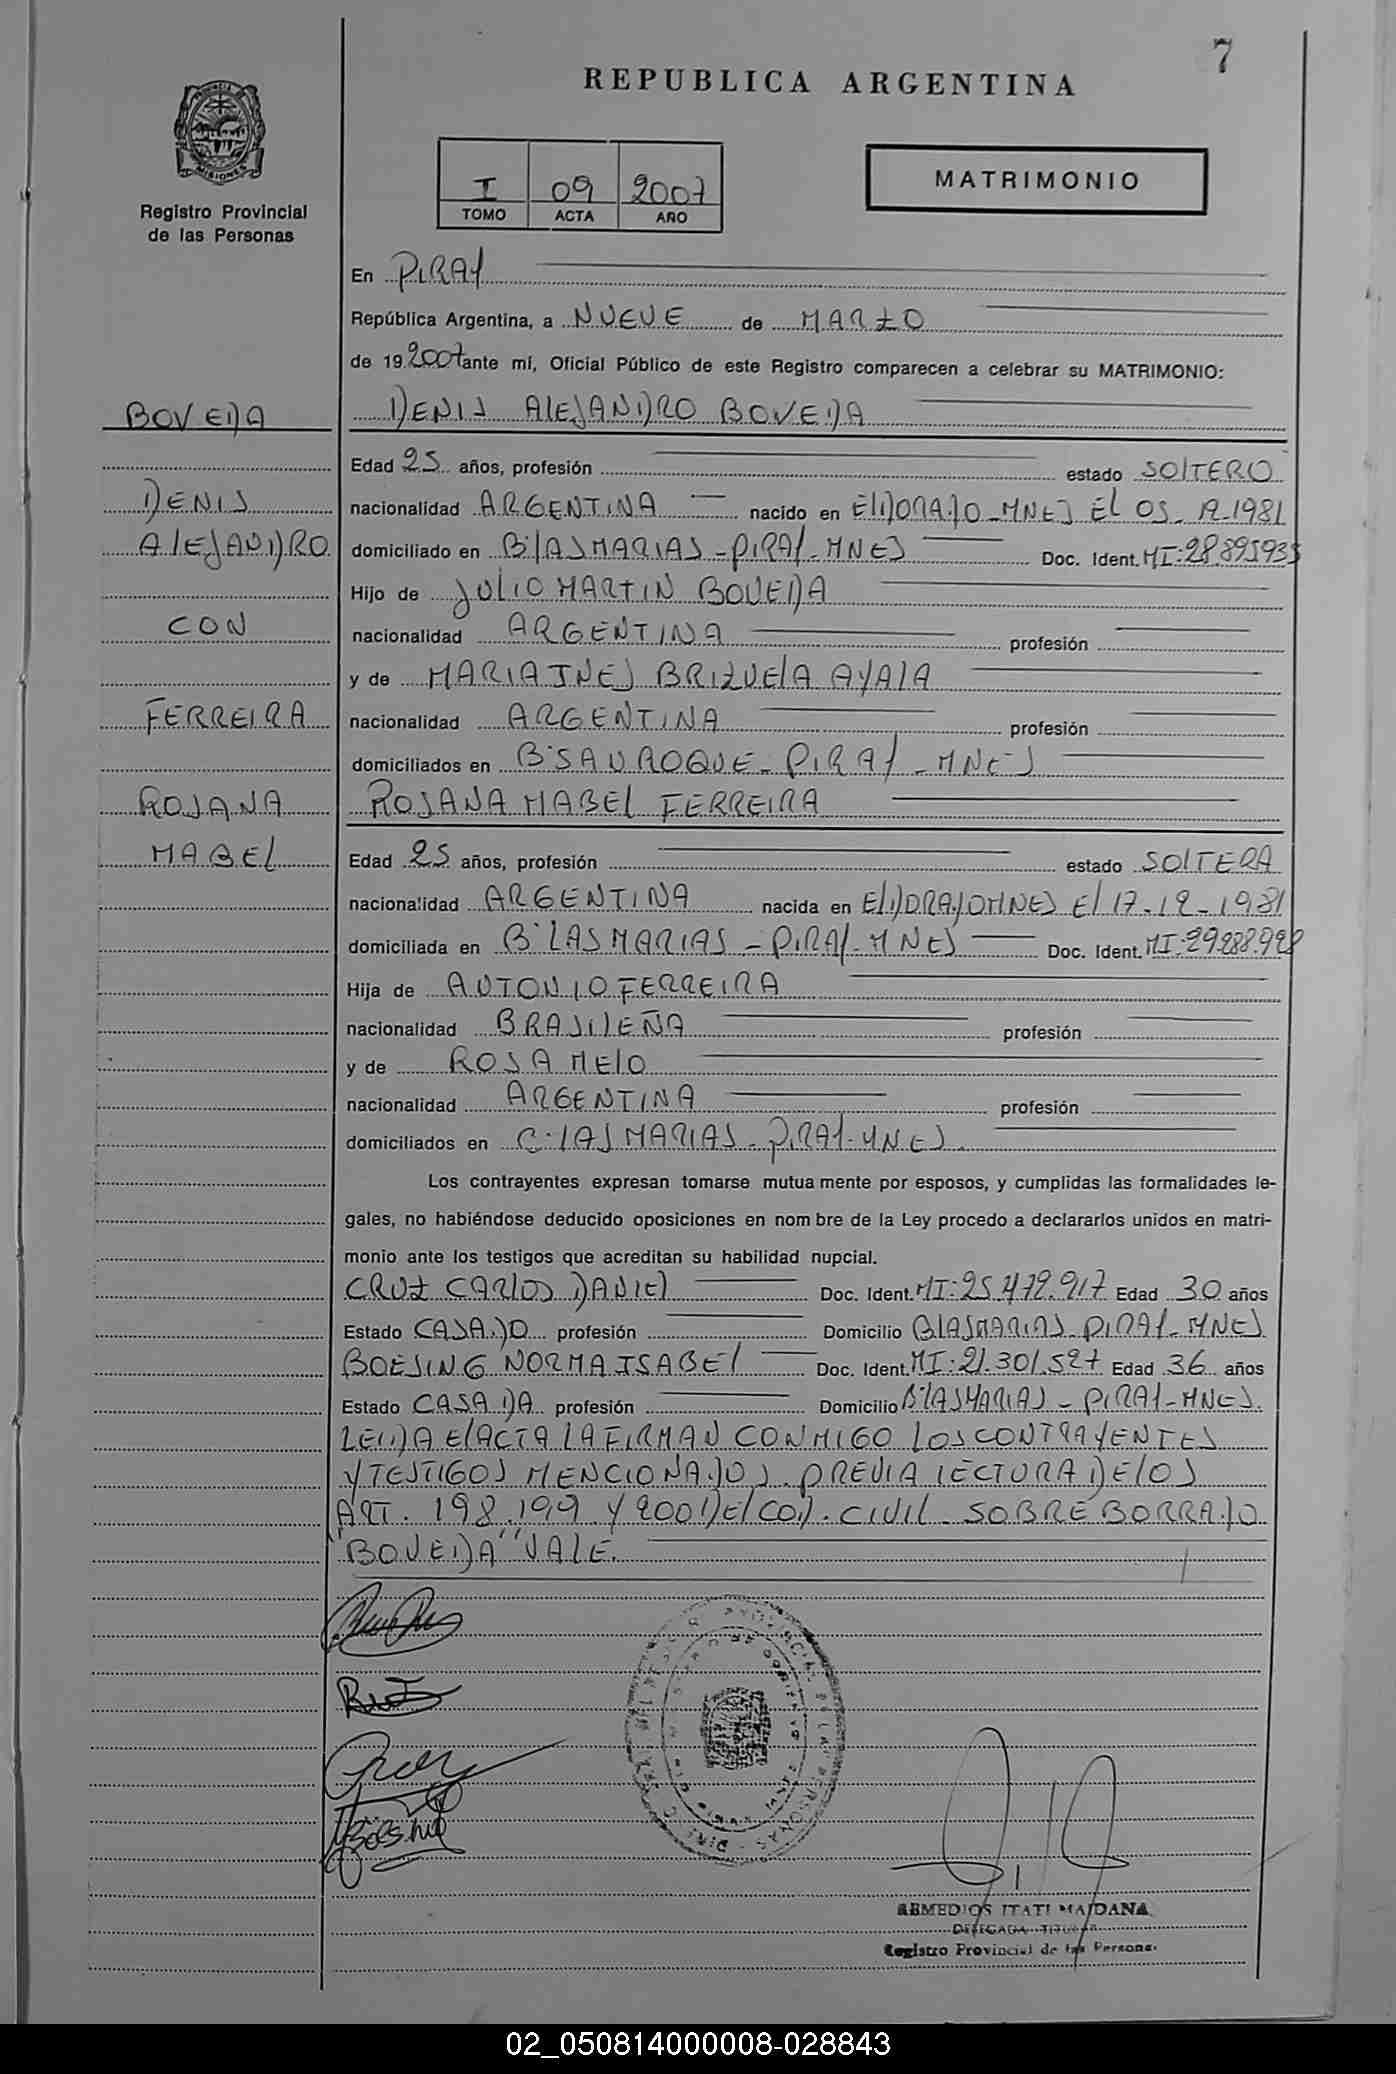 7
REPUBLICA ARGENTINA
PROVINCIA DE MISIONES
Registro Provincial
de las Personas
I 09 2007
TOMO ACTA AÑO
MATRIMONIO
En PIRAY
República Argentina, a NUEVE de MARZO
de 19 2007 ante mí, Oficial Público de este Registro comparecen a celebrar su MATRIMONIO:
BOVEDA
DENIS ALEJANDRO BOVEDA
Edad 25 años, profesión estado SOLTERO
DENIS
nacionalidad ARGENTINA nacido en ELDORADO-MNES EL 05-12-1981
ALEJANDRO
domiciliado en B:LAS MARIAS-PIRAY-MNES Doc. Ident. MI:28.895.935
Hijo de JULIO MARTIN BOVEDA
CON
nacionalidad ARGENTINA profesión
y de MARIA INES BRIZUELA AYALA
FERREIRA
nacionalidad ARGENTINA profesión
domiciliados en B:SAN ROQUE-PIRAY-MNES
ROSANA
ROSANA MABEL FERREIRA
MABEL
Edad 25 años, profesión estado SOLTERA
nacionalidad ARGENTINA nacida en ELDORADO MNES EL 17-12-1981
domiciliada en B:LAS MARIAS-PIRAY-MNES Doc. Ident. MI:29.288.928
Hija de ANTONIO FERREIRA
nacionalidad BRASILEÑA profesión
y de ROSA MELO
nacionalidad ARGENTINA profesión
domiciliados en C:LAS MARIAS-PIRAY-MNES.
Los contrayentes expresan tomarse mutua mente por esposos, y cumplidas las formalidades le-
gales, no habiéndose deducido oposiciones en nom bre de la Ley procedo a declararlos unidos en matri-
monio ante los testigos que acreditan su habilidad nupcial.
CRUZ CARLOS DANIEL Doc. Ident. MI:25.472.917 Edad 30 años
Estado CASADO profesión Domicilio B:LAS MARIAS-PIRAY-MNES
BOESING NORMA ISABEL Doc. Ident. MI:21.301.527 Edad 36 años
Estado CASADA profesión Domicilio B:LAS MARIAS-PIRAY-MNES.
LEIDA EL ACTA LA FIRMAN CONMIGO LOS CONTRAYENTES
Y TESTIGOS MENCIONADOS. PREVIA LECTURA DE LOS
ART. 198.199 Y 200 DEL COD. CIVIL-SOBRE BORRADO
"BOVEDA" VALE.
REMEDIOS ITATI MAIDANA
DELEGADA TITULAR
Registro Provincial de las Personas
02_050814000008-028843